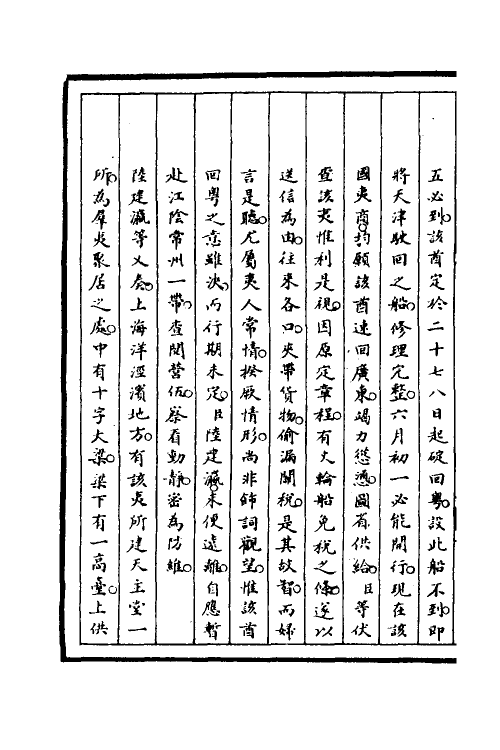 五必到該酋定於二十七八日起碇回粵設此船不到即
將天津駛回之船修理完整六月初一必能開行現在該
國夷商均願該酋速回廣東竭力慫慂圖省供給臣等伏
查該夷惟利是視因原定章程有火輪船免稅之條遂以
送信為由往來各口夾帶貨物偷漏關稅是其故智而婦
言是聽尤屬夷人常情揆厥情形尚非飾詞觀望惟該酋
回粵之意雖決而行期未定臣陸建瀛未便遽離自應暫
赴江陰常州一帶查閱營伍察看動靜密為防維
陸建瀛等又奏上海洋涇濱地方有該夷所建天主堂一
所為群夷聚居之處中有十字大梁梁下有一高臺上供